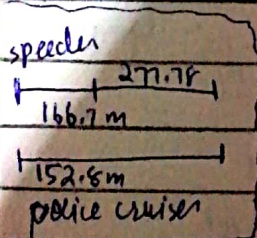 speeder
277.78
166.7 m
152.8m
police cruiser